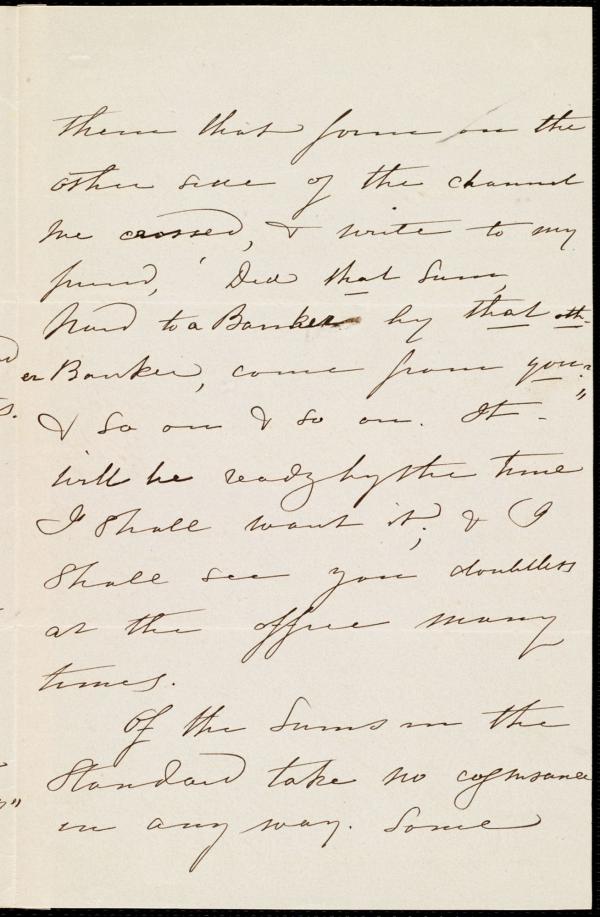 them that form on the
other side of the channel
we crossed, & write to my
friend, "Did that Sum,
paid to a Banker by that oth-
er Banker, come from you?"
& so on & so on. It
will be ready by the time
I shall want it; & I
shall see you doubtless
at the office many
times.
Of the Sums in the
Standard take no cognisance
in any way. Some